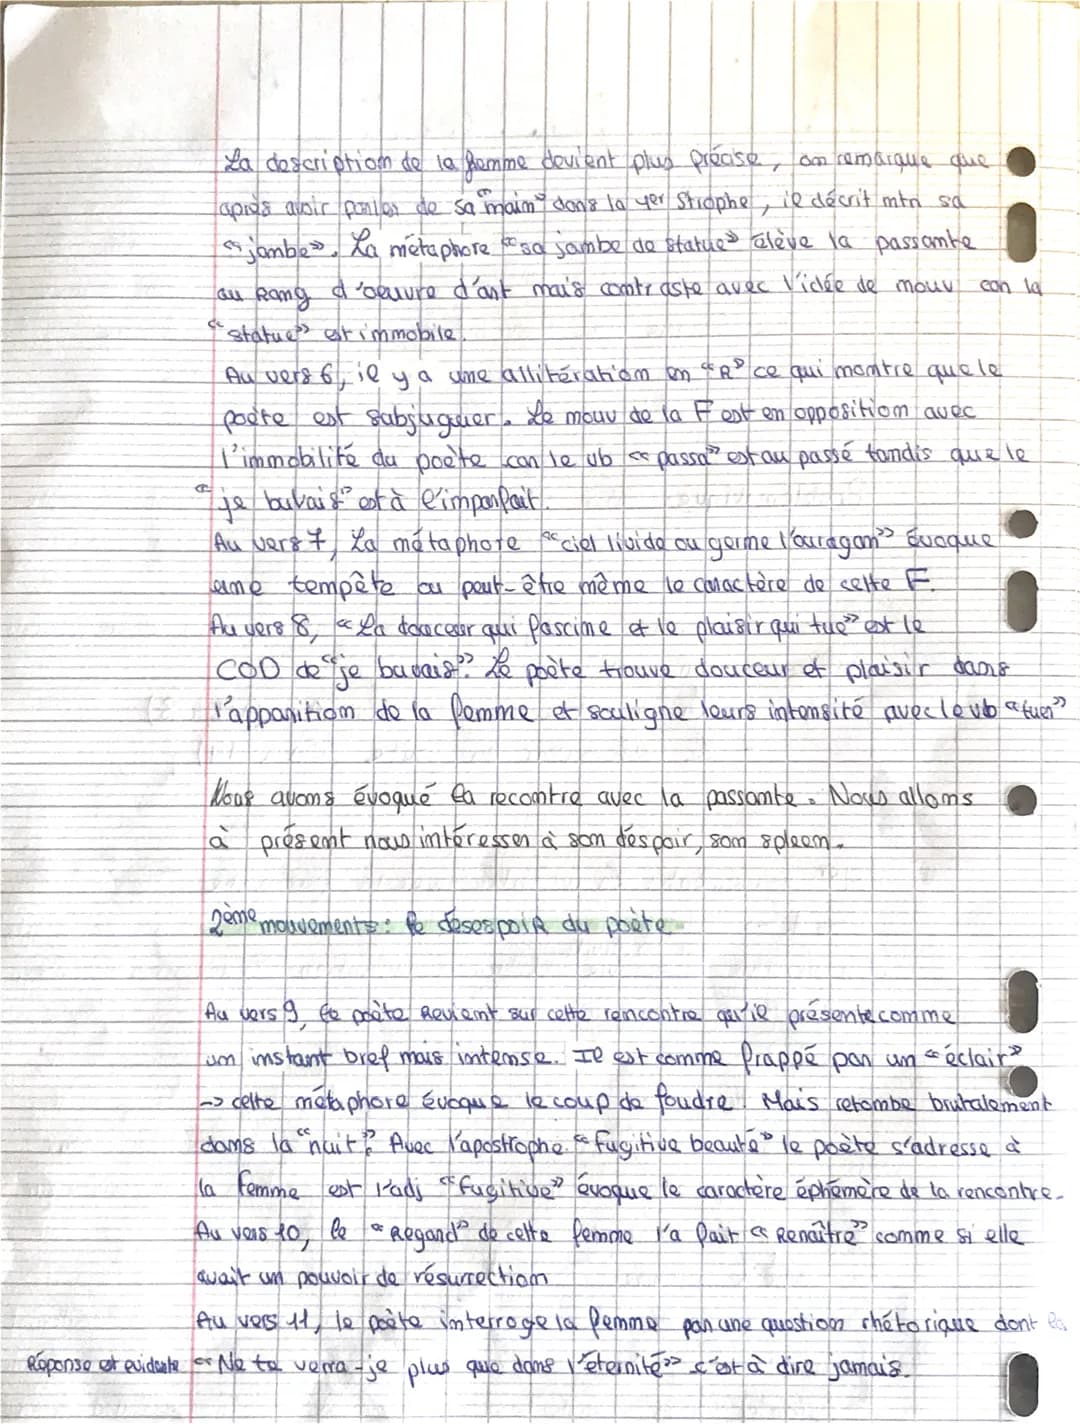 La description de la femme devient plus précise, on remarque que
après avoir parler de sa "main" dans la 1er Strophe, il décrit mtn sa
"jambe". La métaphore "sa jambe de statue" élève la passante
au Rang d'oeuvre d'art mais contraste avec l'idée de mouv car la
"statue" est immobile.
Au vers 6, il y a une allitération en "R" ce qui montre que le
poète est subjuguer. Le mouv de la F est en opposition avec
l'immobilité du poète car le vb "passa" est au passé tandis que le
"je buvais" est à l'imparfait.
Au vers 7, La métaphore "ciel livide ou germe l'ouragan" Évoque
une tempête ou peut-être même le caractère de cette F.
Au vers 8, "La douceur qui fascine et le plaisir qui tue" est le
COD de "je buvais". Le poète trouve douceur et plaisir dans
l'apparition de la femme et souligne leurs intensité avec le vb "tuer"
Nous avons évoqué la recontre avec la passante. Nous allons
à présent nous intéresser à son déspoir, son spleen.
2ème mouvements: le désespoiR du poète
Au vers 9, le poète Revient sur cette rencontre qu'il présente comme
un instant bref mais intense. Il est comme frappé par un "éclair"
-> cette métaphore Évoque le coup de foudre. Mais retombe brutalement
dans la "nuit". Avec l'apostrophe "fugitive beauté" le poète s'adresse à
la femme est l'adj "fugitive" évoque le caractère éphémère de la rencontre.
Au vers 10, le "Regard" de cette femme l'a fait "Renaître" comme si elle
avait un pouvoir de résurrection
Au vers 11, le poète interroge la femme par une question rhétorique dont la
Réponse est évidente "Ne te verra-je plus que dans l'éternité" c'est à dire jamais.